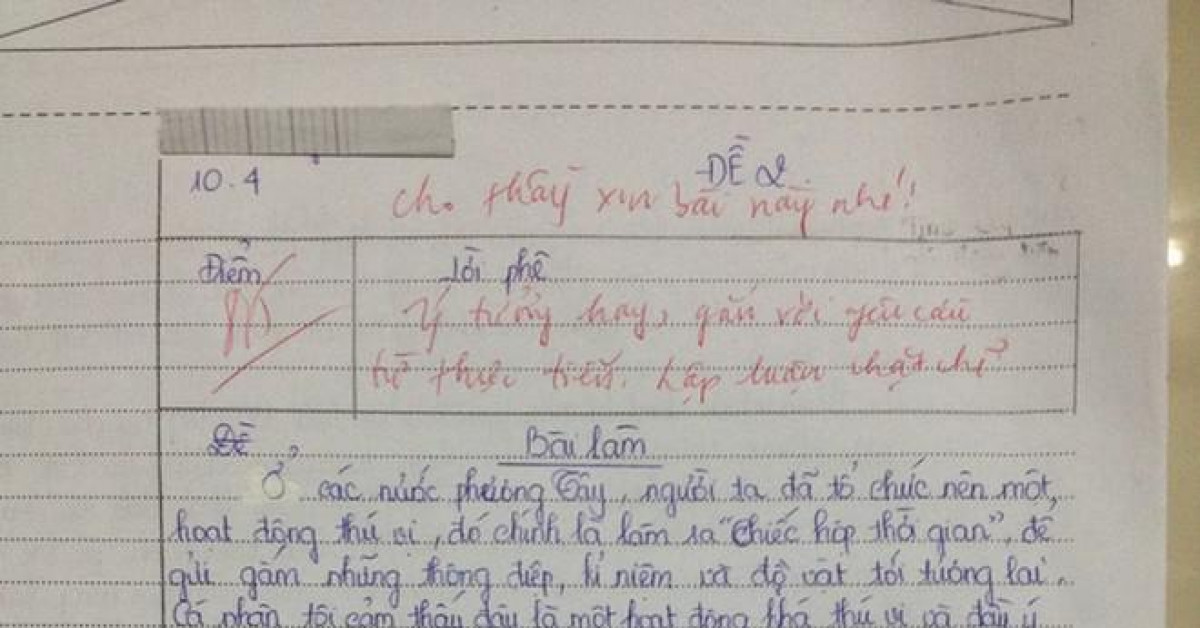 10.4
ĐỀ 2
Cho thầy xin bài này nhé!
Điểm
Lời phê
Ý tưởng hay, gắn với yêu cầu
từ thực tiễn. Lập luận chặt chẽ
Đề
Bài làm
Ở các nước phương Tây, người ta đã tổ chức nên một
hoạt động thú vị, đó chính là làm ra "Chiếc hộp thời gian", để
gửi gắm những thông điệp, kỉ niệm và đồ vật tới tương lai.
Cá nhân tôi cảm thấy đây là một hoạt động khá thú vị và đầy ý